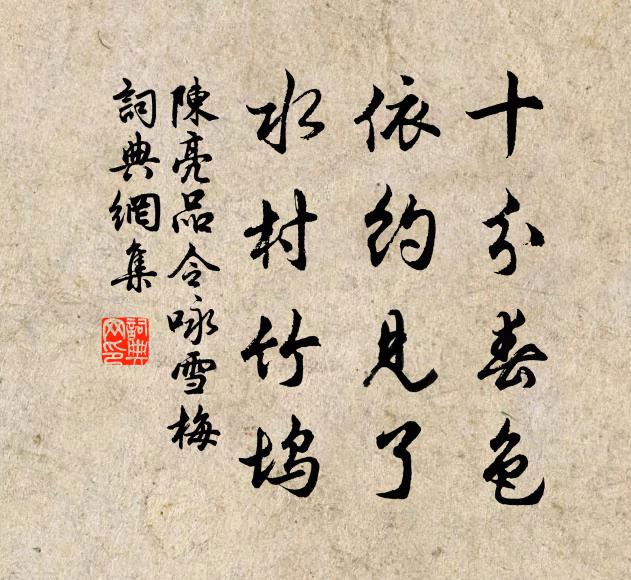 十分春色
依約見了
水村竹塢
陳亮品令咏雪梅
詞典網集
詞典
网印